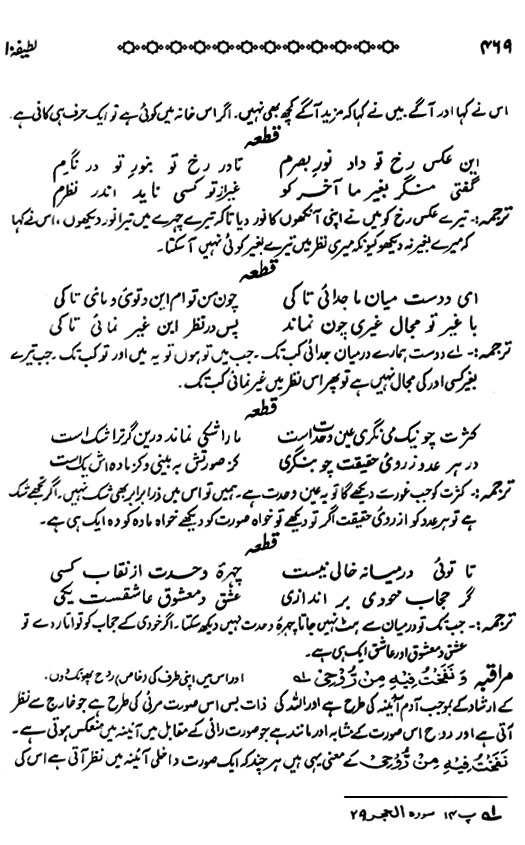 ۴۶۹ لطیفۂ ۱
اس نے کہا اور آگے، میں نے کہا کہ مزید آگے کچھ بھی نہیں۔ اگر اس خانہ میں کوئی ہے تو ایک حرف ہی کافی ہے۔
قطعہ
این عکس رخ تو داد نور بصرم تا در رخ تو بنور تو در نگرم
گفتی منگر بغیر ما آخر کو غیر از تو کسی ناید اندر نظرم
ترجمہ:- تیرے عکس رخ کو میں نے اپنی آنکھوں کا نور دیا تاکہ تیرے چہرے میں تیرا نور دیکھوں، اس نے کہا
کہ میرے بغیر نہ دیکھو کیونکہ میری نظر میں تیرے بغیر کوئی نہیں آسکتا۔
قطعہ
ای دوست میان ما جدائی تا کی چون من تو ام این و توئ و مائ تا کی
با غیر تو مجال غیری چون نماند پس در نظر این غیر نمائی تا کی
ترجمہ:- اے دوست ہمارے درمیان جدائی کب تک۔ جب میں تو ہوں تو یہ میں اور تو کب تک۔ جب تیرے
بغیر کسی اور کی مجال نہیں ہے تو پھر اس نظر میں غیر نمائی کب تک۔
قطعہ
کثرت چو نیک می نگری عین وحدت است ما را شکی نماند درین گر ترا شک است
در ہر عدد ز روئ حقیقت چو بنگری گر صورتش بہ بینی وگر مادہ اش یک است
ترجمہ:- کثرت کو جب غور سے دیکھے گا تو یہ عین وحدت ہے۔ ہمیں تو اس میں ذرا برابر بھی شک نہیں۔ اگر تجھے شک
ہے تو ہر عدد کو از روئ حقیقت اگر تو دیکھے تو خواہ صورت کو دیکھے خواہ مادہ کو وہ ایک ہی ہے۔
قطعہ
تا توئی درمیانہ خالی نیست چہرۂ وحدت از نقاب کسی
گر حجاب خودی بر اندازی عشق و معشوق عاشقست یکی
ترجمہ:- جب تک تو درمیان سے ہٹ نہیں جاتا چہرۂ وحدت نہیں دیکھ سکتا۔ اگر خودی کے حجاب کو تو اتار دے تو
عشق و معشوق اور عاشق ایک ہی ہے۔
مراقبہ وَنَفَخْتُ فِيْهِ مِنْ رُّوْحِيْ لہ اور اس میں اپنی طرف کی (خاص) روح پھونک دوں۔
کے ارشاد کے بموجب آدم آئینہ کی طرح ہے اور اللہ کی ذات بس اس صورت مرئی کی طرح ہے جو خارج سے نظر
آتی ہے اور روح اس صورت کے مشابہ اور مانند ہے جو صورت رائی کے مقابل میں آئینہ میں منعکس ہوتی ہے۔
نَفَخْتُ فِيْهِ مِنْ رُّوْحِيْ کے معنی یہی ہیں ہر چند کہ ایک صورت داخلی آئینہ میں نظر آتی ہے اس کی
لہ پ ۱۴ سورہ الحجر ۲۹